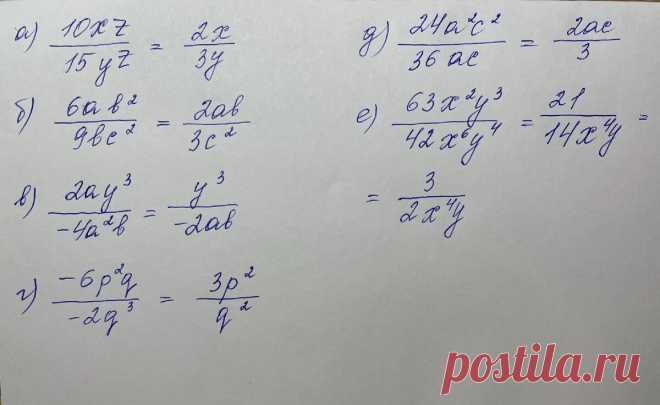 а) 10xz / 15yz = 2x / 3y
б) 6ab² / 9bc² = 2ab / 3c²
в) 2ay³ / -4a²b = y³ / -2ab
г) -6p²q / -2q³ = 3p² / q²
д) 24a²c² / 36ac = 2ac / 3
е) 63x²y³ / 42x⁶y⁴ = 21 / 14x⁴y =
= 3 / 2x⁴y
postila.ru